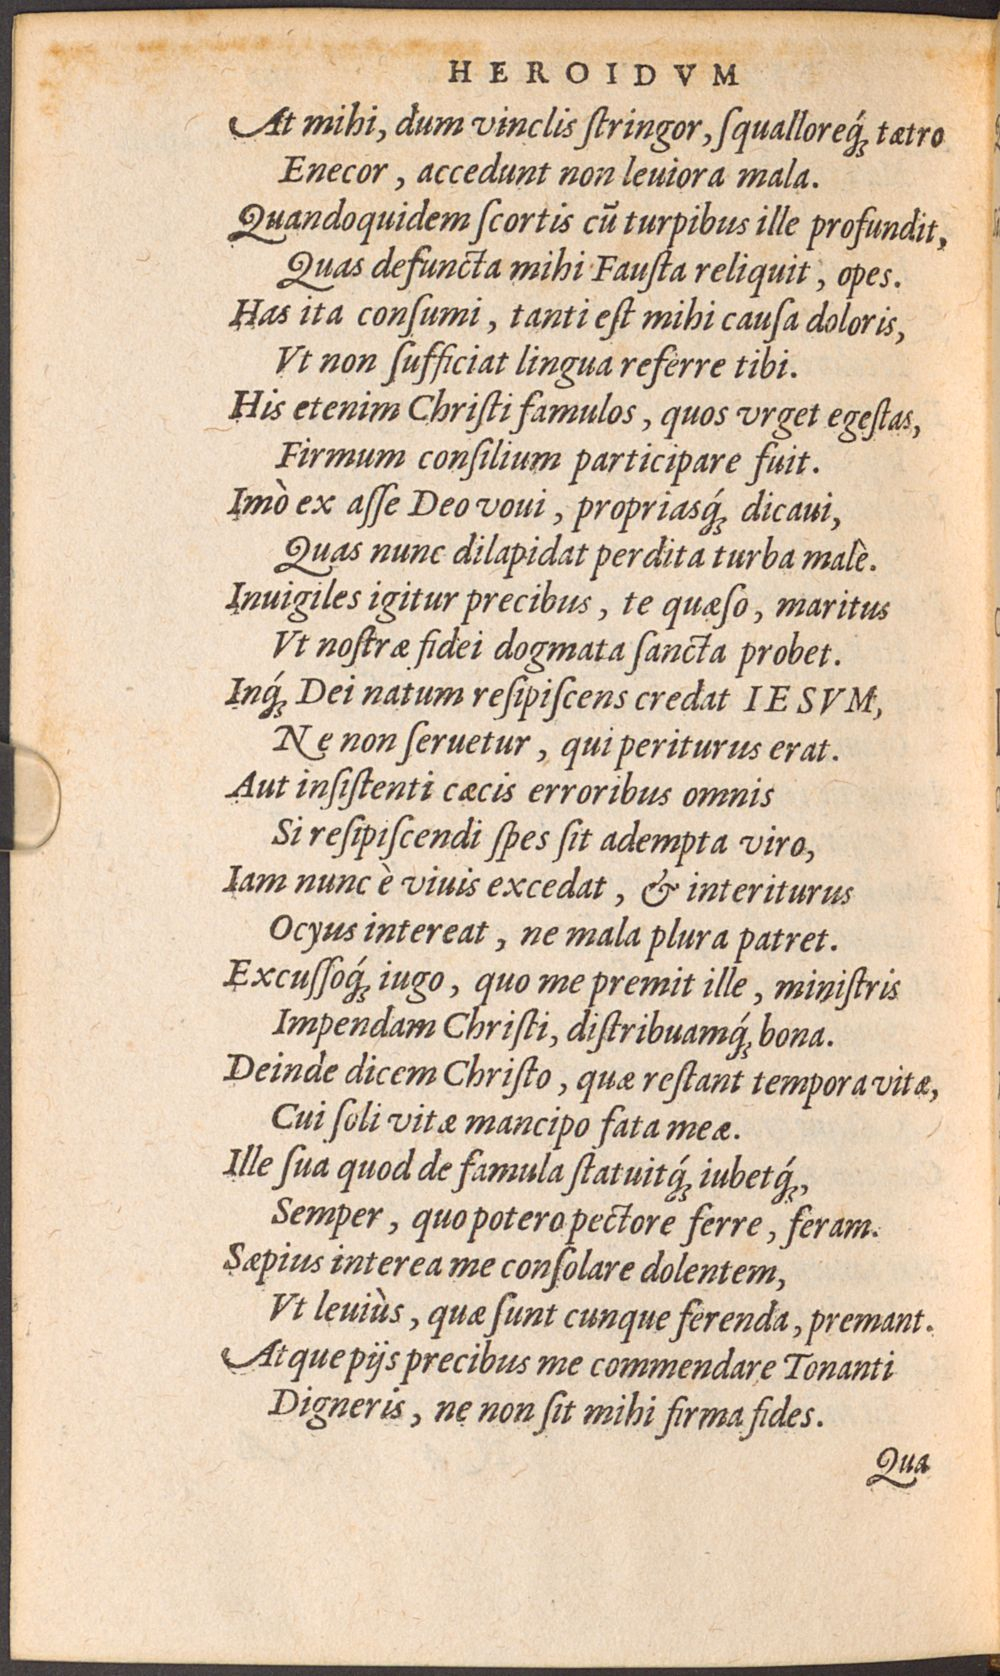 HEROIDVM
At mihi, dum vinclis ſtringor, ſqualloreq́ꝫ tætro
Enecor, accedunt non leuiora mala.
Quandoquidem ſcortis cū turpibus ille profundit,
Quas defuncta mihi Fauſta reliquit, opes.
Has ita conſumi, tanti eſt mihi cauſa doloris,
Vt non ſufficiat lingua referre tibi.
His etenim Chriſti famulos, quos vrget egeſtas,
Firmum conſilium participare fuit.
Imò ex aſſe Deo voui, propriasq́ꝫ dicaui,
Quas nunc dilapidat perdita turba malè.
Inuigiles igitur precibus, te quæſo, maritus
Vt noſtræ fidei dogmata ſancta probet.
Inq́ꝫ Dei natum reſipiſcens credat IESVM,
Ne non ſeruetur, qui periturus erat.
Aut inſiſtenti cæcis erroribus omnis
Si reſipiſcendi ſpes ſit adempta viro,
Iam nunc è viuis excedat, & interiturus
Ocyus intereat, ne mala plura patret.
Excuſſoq́ꝫ iugo, quo me premit ille, miniſtris
Impendam Chriſti, diſtribuamq́ꝫ bona.
Deinde dicem Chriſto, quæ reſtant tempora vitæ,
Cui ſoli vitæ mancipo fata meæ.
Ille ſua quod de famula ſtatuitq́ꝫ iubetq́ꝫ,
Semper, quo potero pectore ferre, feram.
Sæpius interea me conſolare dolentem,
Vt leuiùs, quæ ſunt cunque ferenda, premant.
Atque pijs precibus me commendare Tonanti
Digneris, ne non ſit mihi firma fides.
Qua